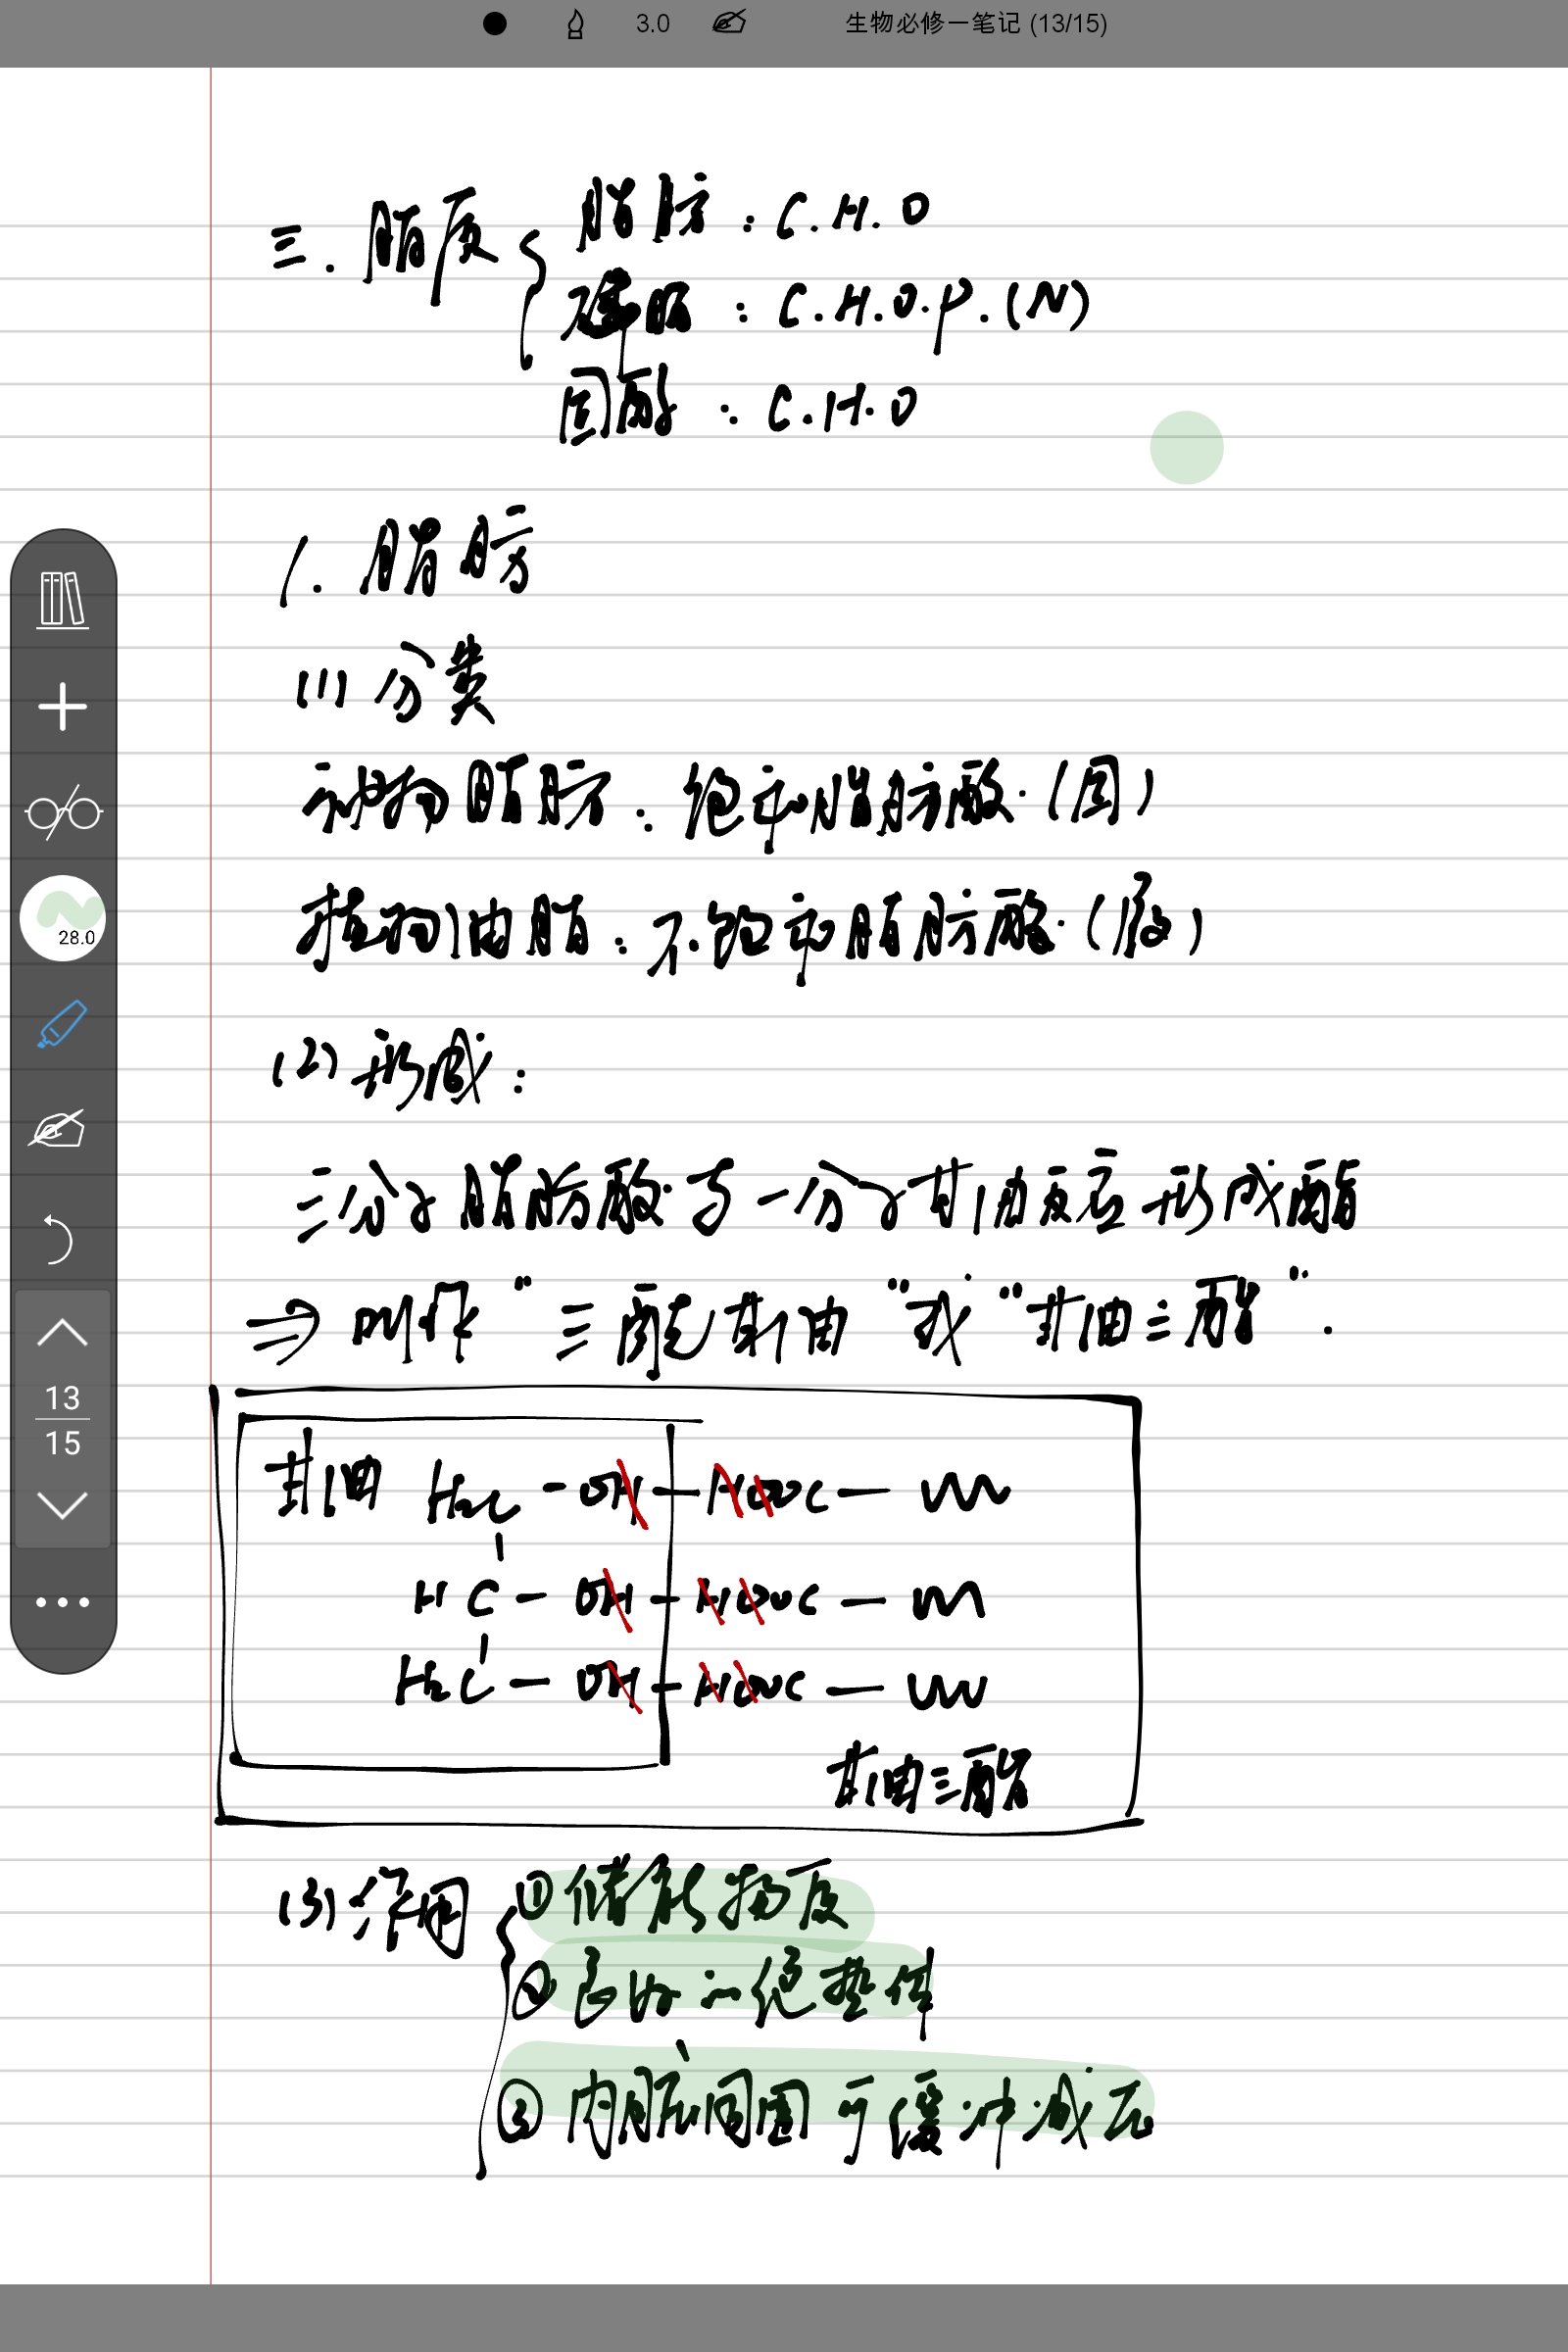 3.0 生物必修一笔记 (13/15)
三.脂质
脂肪:C.H.O
磷脂:C.H.O.P.(N)
固醇:C.H.O
1.脂肪
(1)分类
动物脂肪:饱和脂肪酸.(固)
植物油脂:不饱和脂肪酸.(液)
28.0
(2)形成:
三分子脂肪酸与一分子甘油反应形成酯
⇒叫作"三酰甘油"或"甘油三酯".
13
15
甘油 H2C-OH-HOOC-
HC-OH-HOOC-
H2C-OH-HOOC-
甘油三酯
(3)作用
①储能物质
②良好的绝热体
③内脏周围可缓冲减压